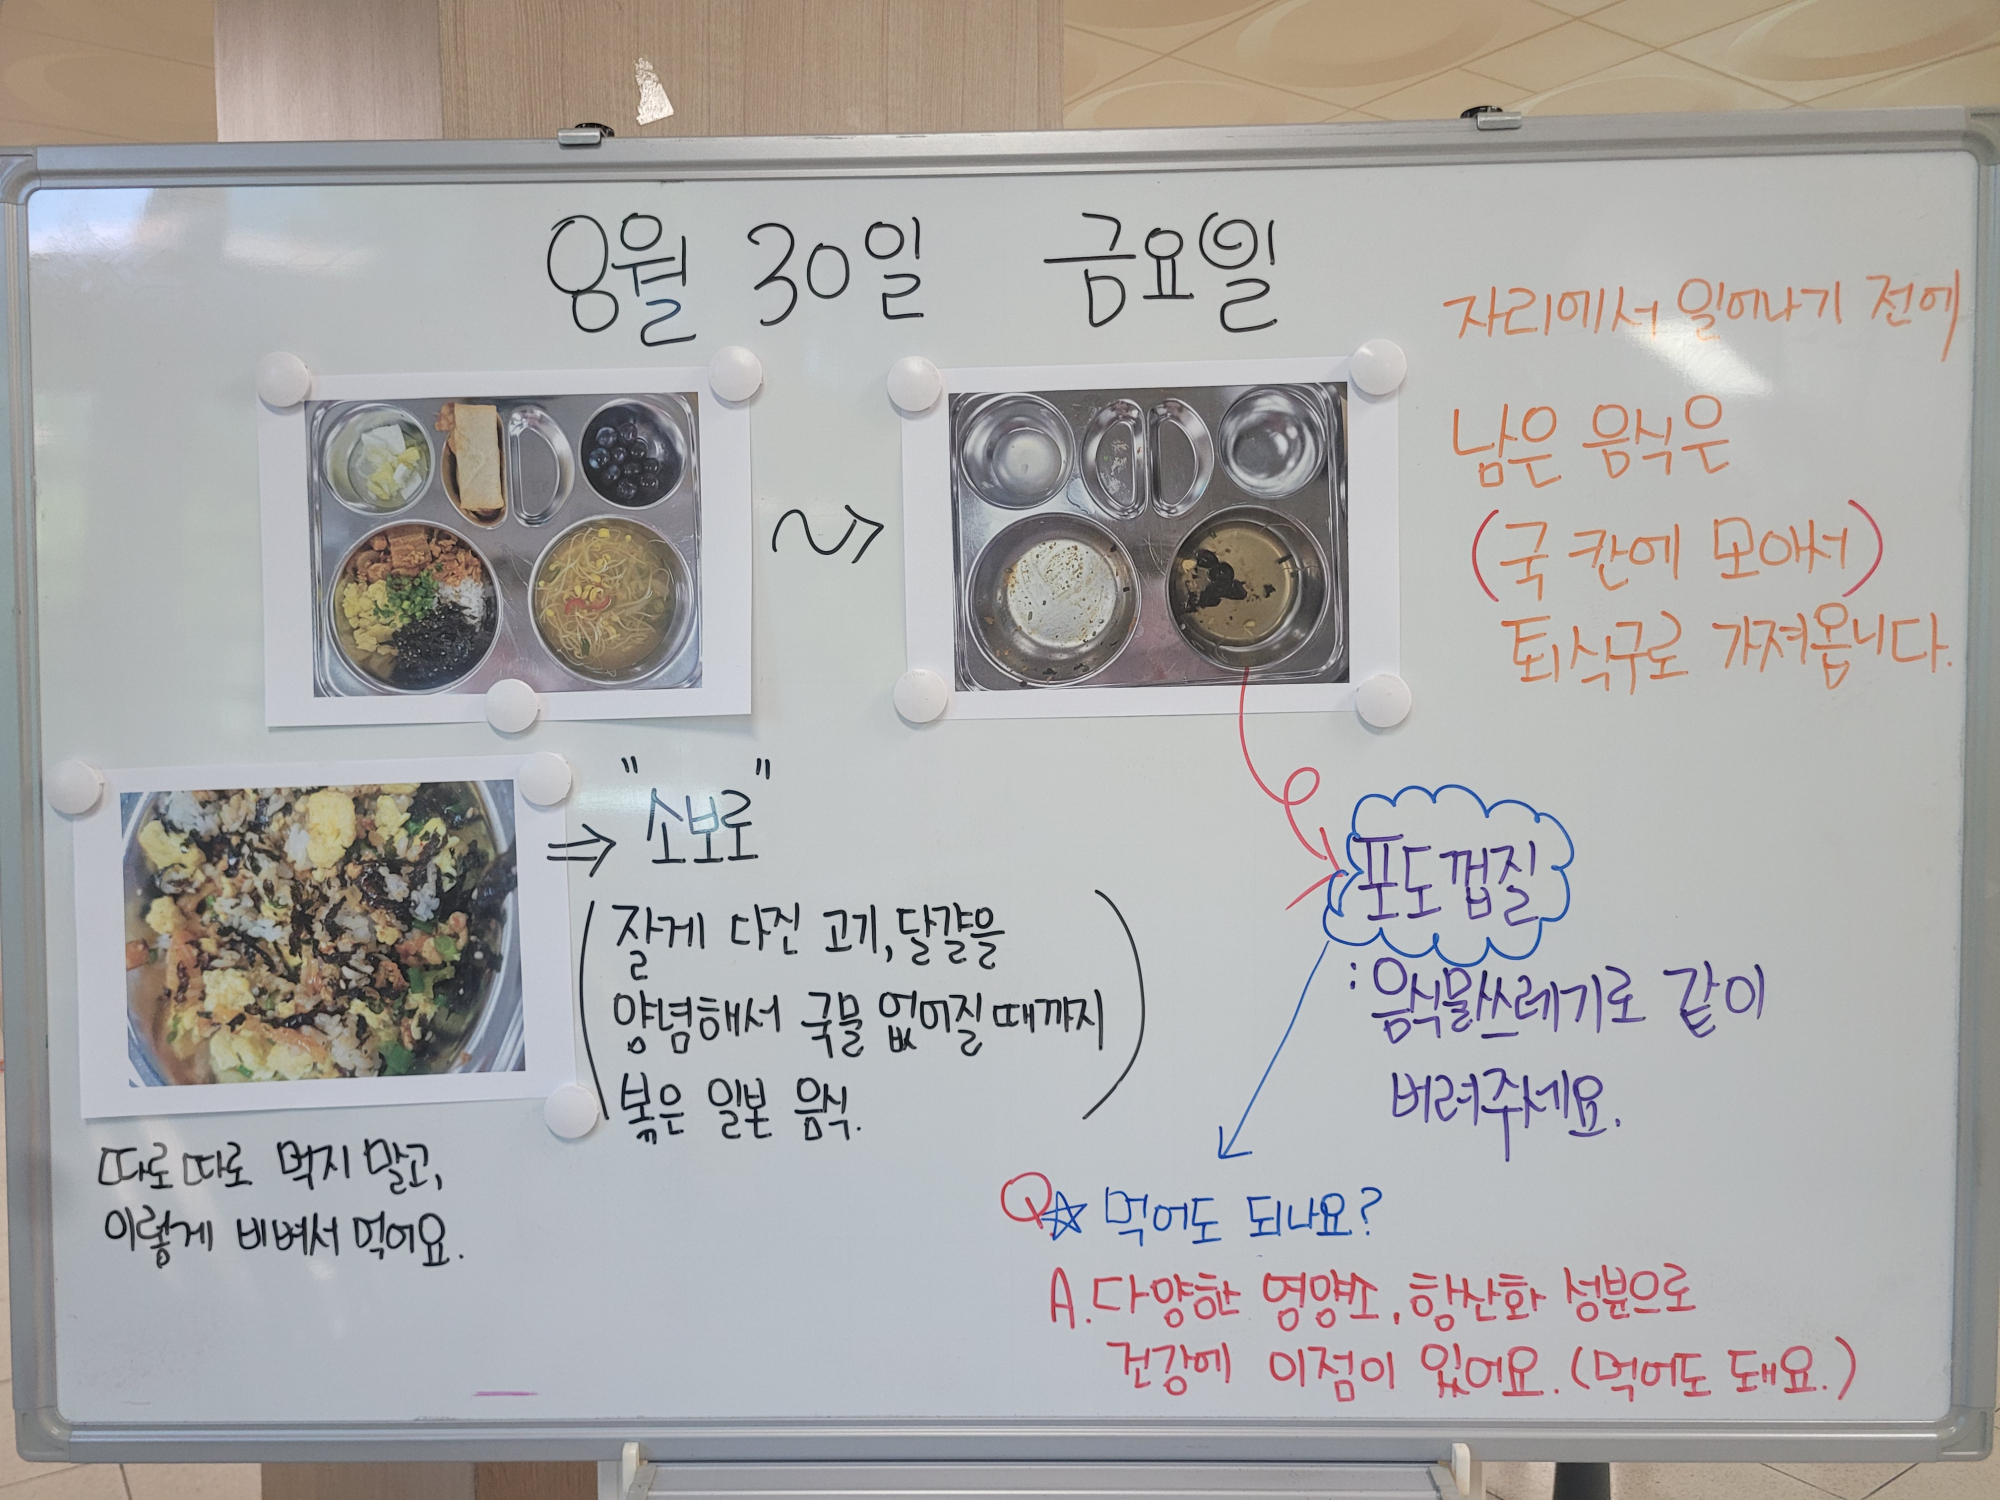 8월 30일 금요일
자리에서 일어나기 전에
남은 음식은
(국 칸에 모아서)
퇴식구로 가져옵니다.
"소보로"
잘게 다진 고기, 달걀을
양념해서 국물 없어질 때까지
볶은 일본 음식.
따로 따로 먹지 말고,
이렇게 비벼서 먹어요.
포도껍질
: 음식물쓰레기로 같이
버려주세요.
Q☆ 먹어도 되나요?
A. 다양한 영양소, 항산화 성분으로
건강에 이점이 있어요. (먹어도 돼요.)